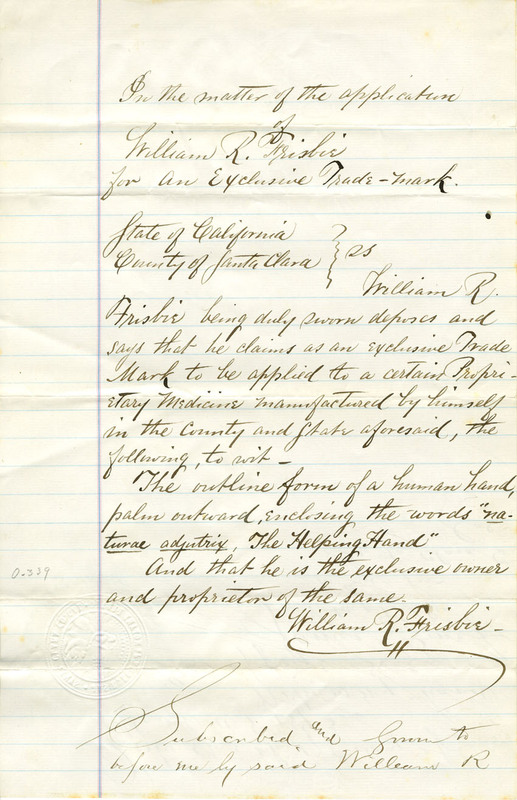 In the matter of the application
of
William R. Frisbie
for an Exclusive Trade-mark.
State of California
County of Santa Clara } ss
William R.
Frisbie being duly sworn deposes and
says that he claims as an exclusive Trade
Mark to be applied to a certain Propri-
etary Medicine manufactured by himself
in the County and State aforesaid, the
following, to wit -
The outline form of a human hand,
palm outward, enclosing the words "na-
turae adjutrix, The Helping Hand"
And that he is the exclusive owner
and proprietor of the same.
William R. Frisbie -
0-339
Subscribed and sworn to
before me by said William R